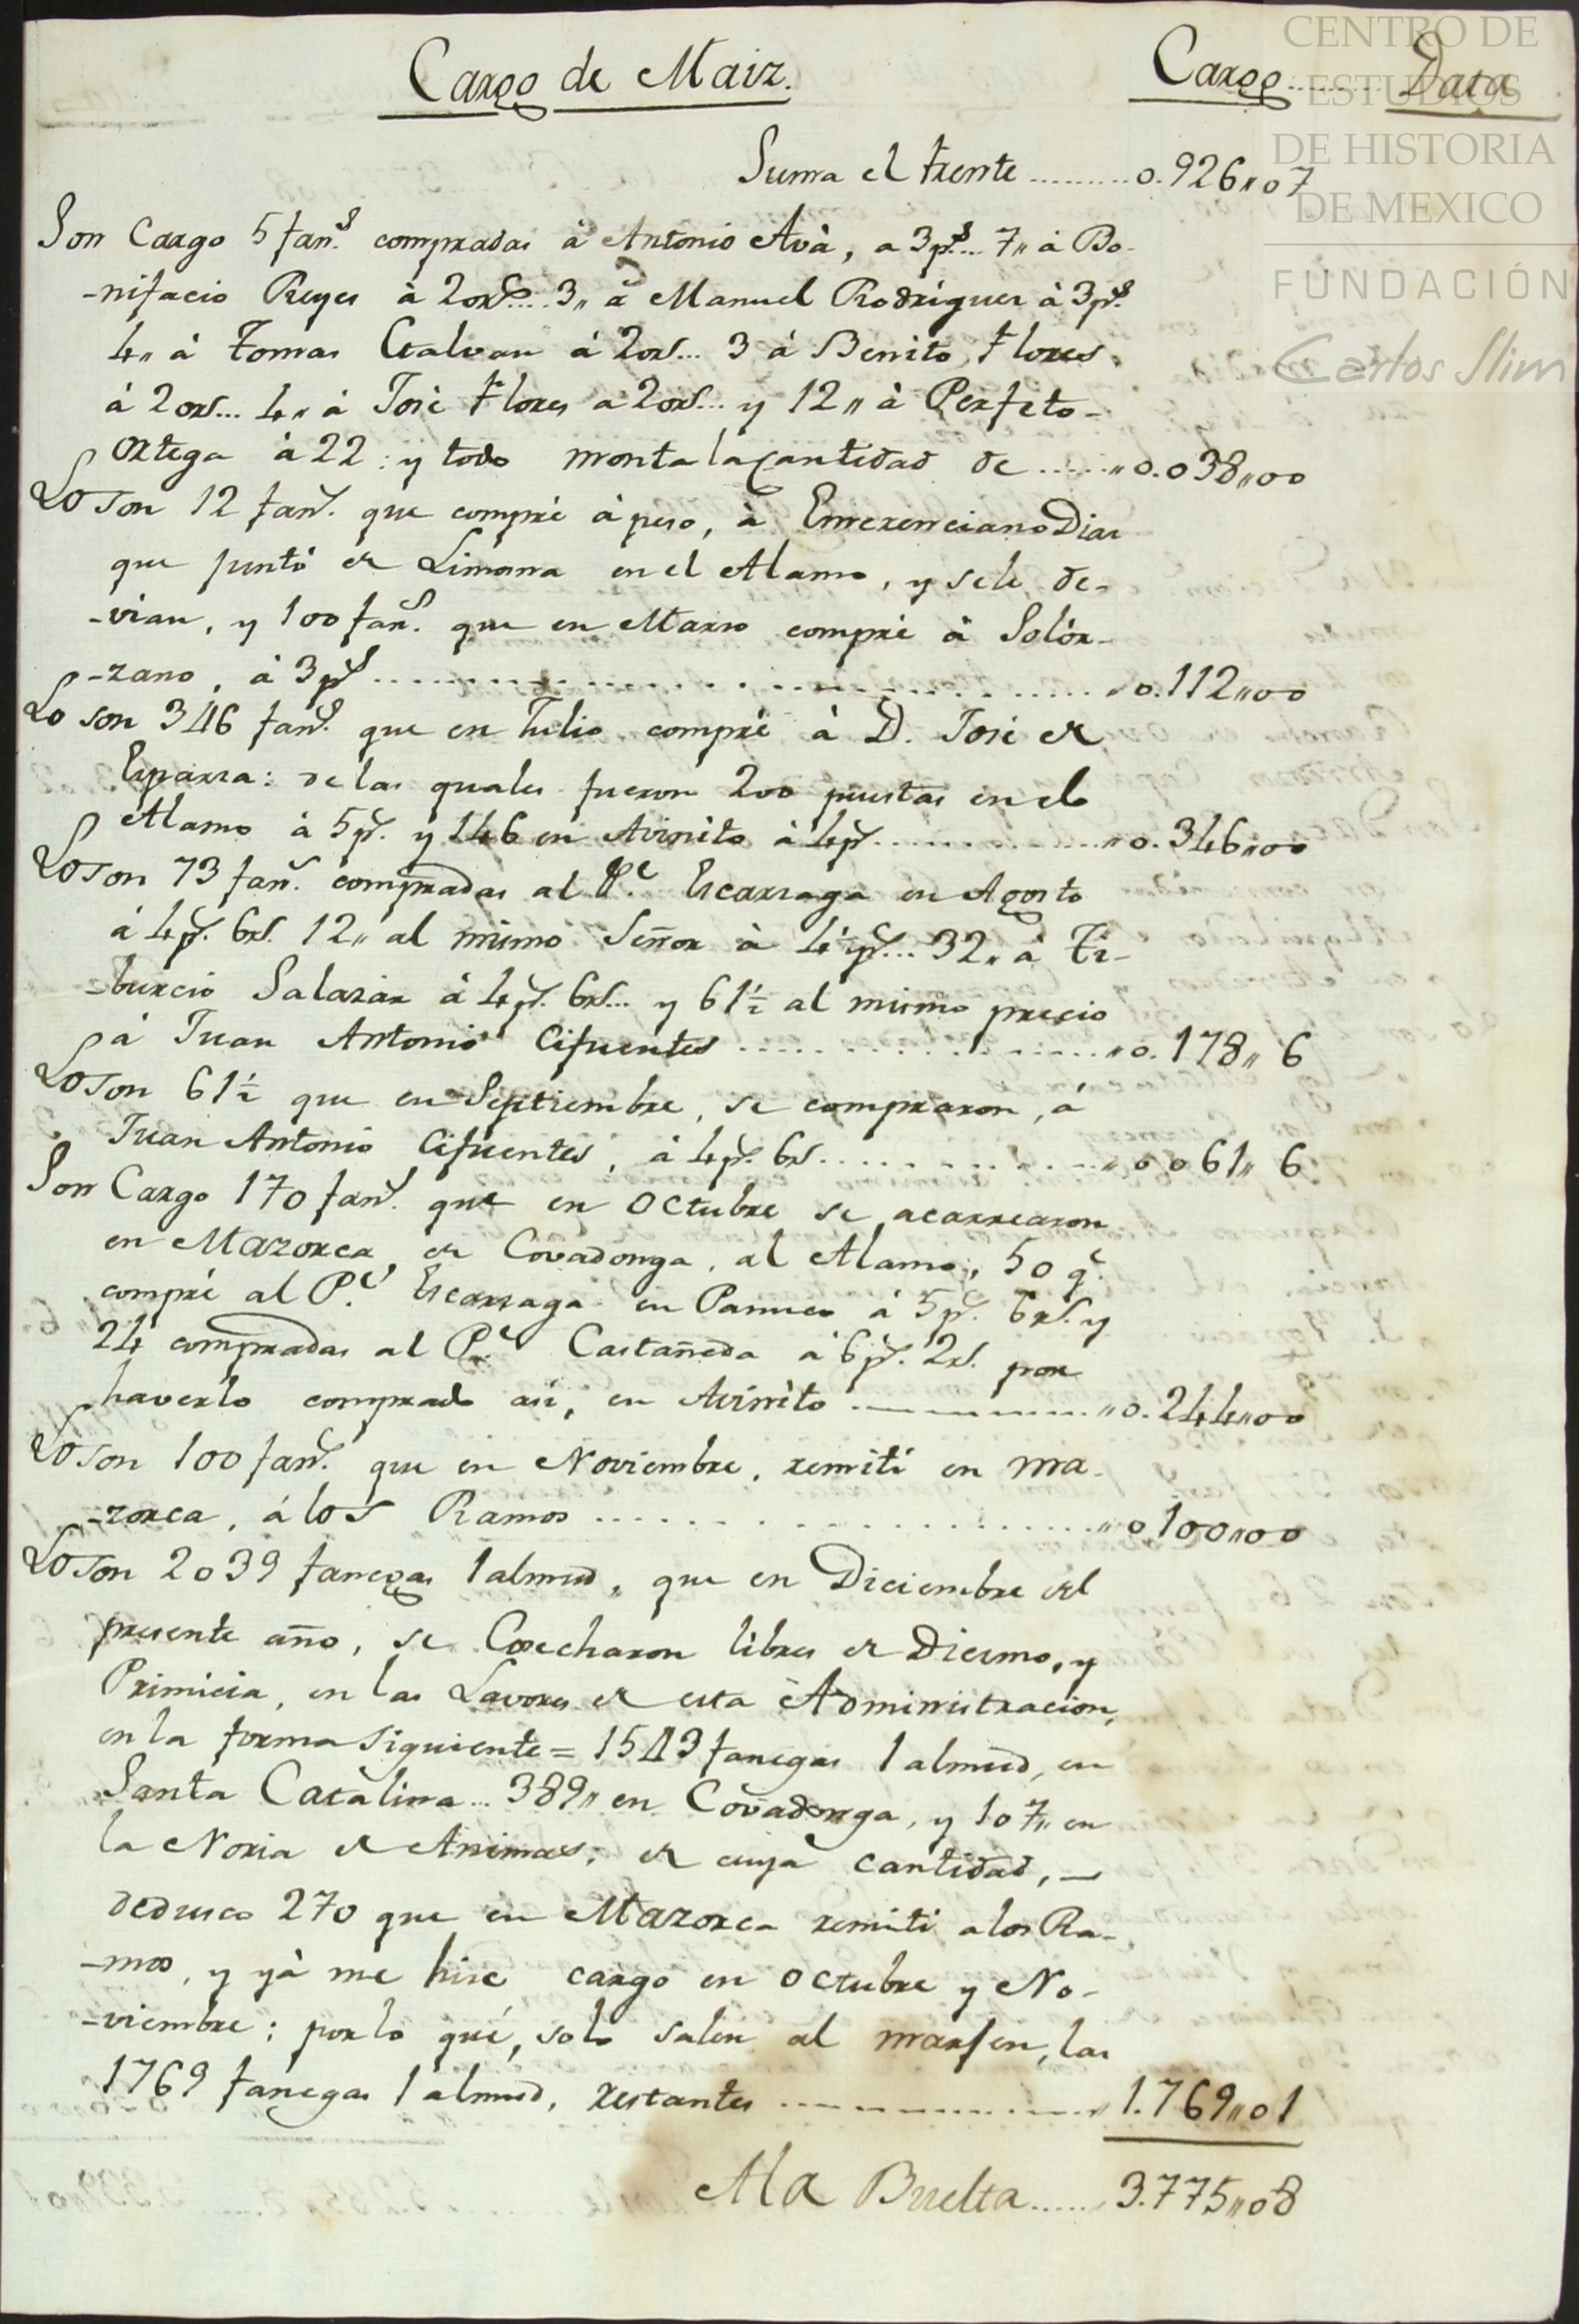 Cargo de Maiz. Cargo ........ Data
CENTRO DE
ESTUDIOS
DE HISTORIA
DE MEXICO
FUNDACIÓN
Carlos Slim
Suma el frente ......... 0.926,,07
Son Cargo 5 fans. compradas á Antonio Avà, a 3ps... 7,, á Bo-
-nifacio Reyes à 20rs.... 3,, á Manuel Rodriguez à 3ps.
4,, à Tomas Galvan á 20rs... 3 á Benito Flores
á 20rs... 4,, à José Flores a 20rs... y 12,, à Perfeto-
Ortega à 22: y todo monta la cantidad de ......,,0.038,,00
Lo son 12 fans. que compré á peso, à Emerenciano Dias
que juntó de Limosna en el Alamo, y se le de-
-vian, y 100 fans. que en Marzo compré à Solór-
-zano, á 3ps ........................,,0.112,,00
Lo son 346 fans. que en Julio compré à D. José de
Esparza: de las quales fueron 200 puestas en el
Alamo à 5ps. y 146 en Avinito à 4ps...............,,0.346,,00
Lo son 73 fans. compradas al Pe. Escarzaga en Agosto
á 4ps. 6rs. 12,, al mismo Señor à 4½ps... 32,, à Ti-
-burcio Salazar á 4ps. 6rs... y 61½ al mismo precio
á Juan Antonio Cifuentes ....................,,0.178,, 6
Lo son 61½ que en Septiembre, se compraron, á
Juan Antonio Cifuentes, à 4ps. 6rs...............,,0 061,, 6
Son Cargo 170 fans. que en Octubre se acarrearon
en Mazorca, de Covadonga, al Alamo, 50 qe.
compré al Pe. Escarzaga en Panuco á 5ps. 6rs. y
24 compradas al Pe. Castañeda à 6ps. 2rs. por
haverlo comprado asi, en Avinito ...............,,0.244,,00
Lo son 100 fans. que en Noviembre, remití en ma-
-zorca, á los Ramos ........................,,0 100,,00
Lo son 2039 fanegas 1 almud, que en Diciembre del
presente año, se Cosecharon libres de Diezmo, y
Primicia, en las Lavores de esta Administracion,
en la forma siguiente = 1543 fanegas 1 almud, en
Santa Catalina... 389,, en Covadonga, y 107,, en
la Noria de Animas; de cuya cantidad, —
deduzco 270 que en Mazorca remiti a los Ra-
-mos, y yà me hise cargo en Octubre y No-
-viembre; por lo qué, solo salen al marjen, las
1769 fanegas 1 almud, restantes ...............,,1.769,,01
A la Buelta......3.775,,08